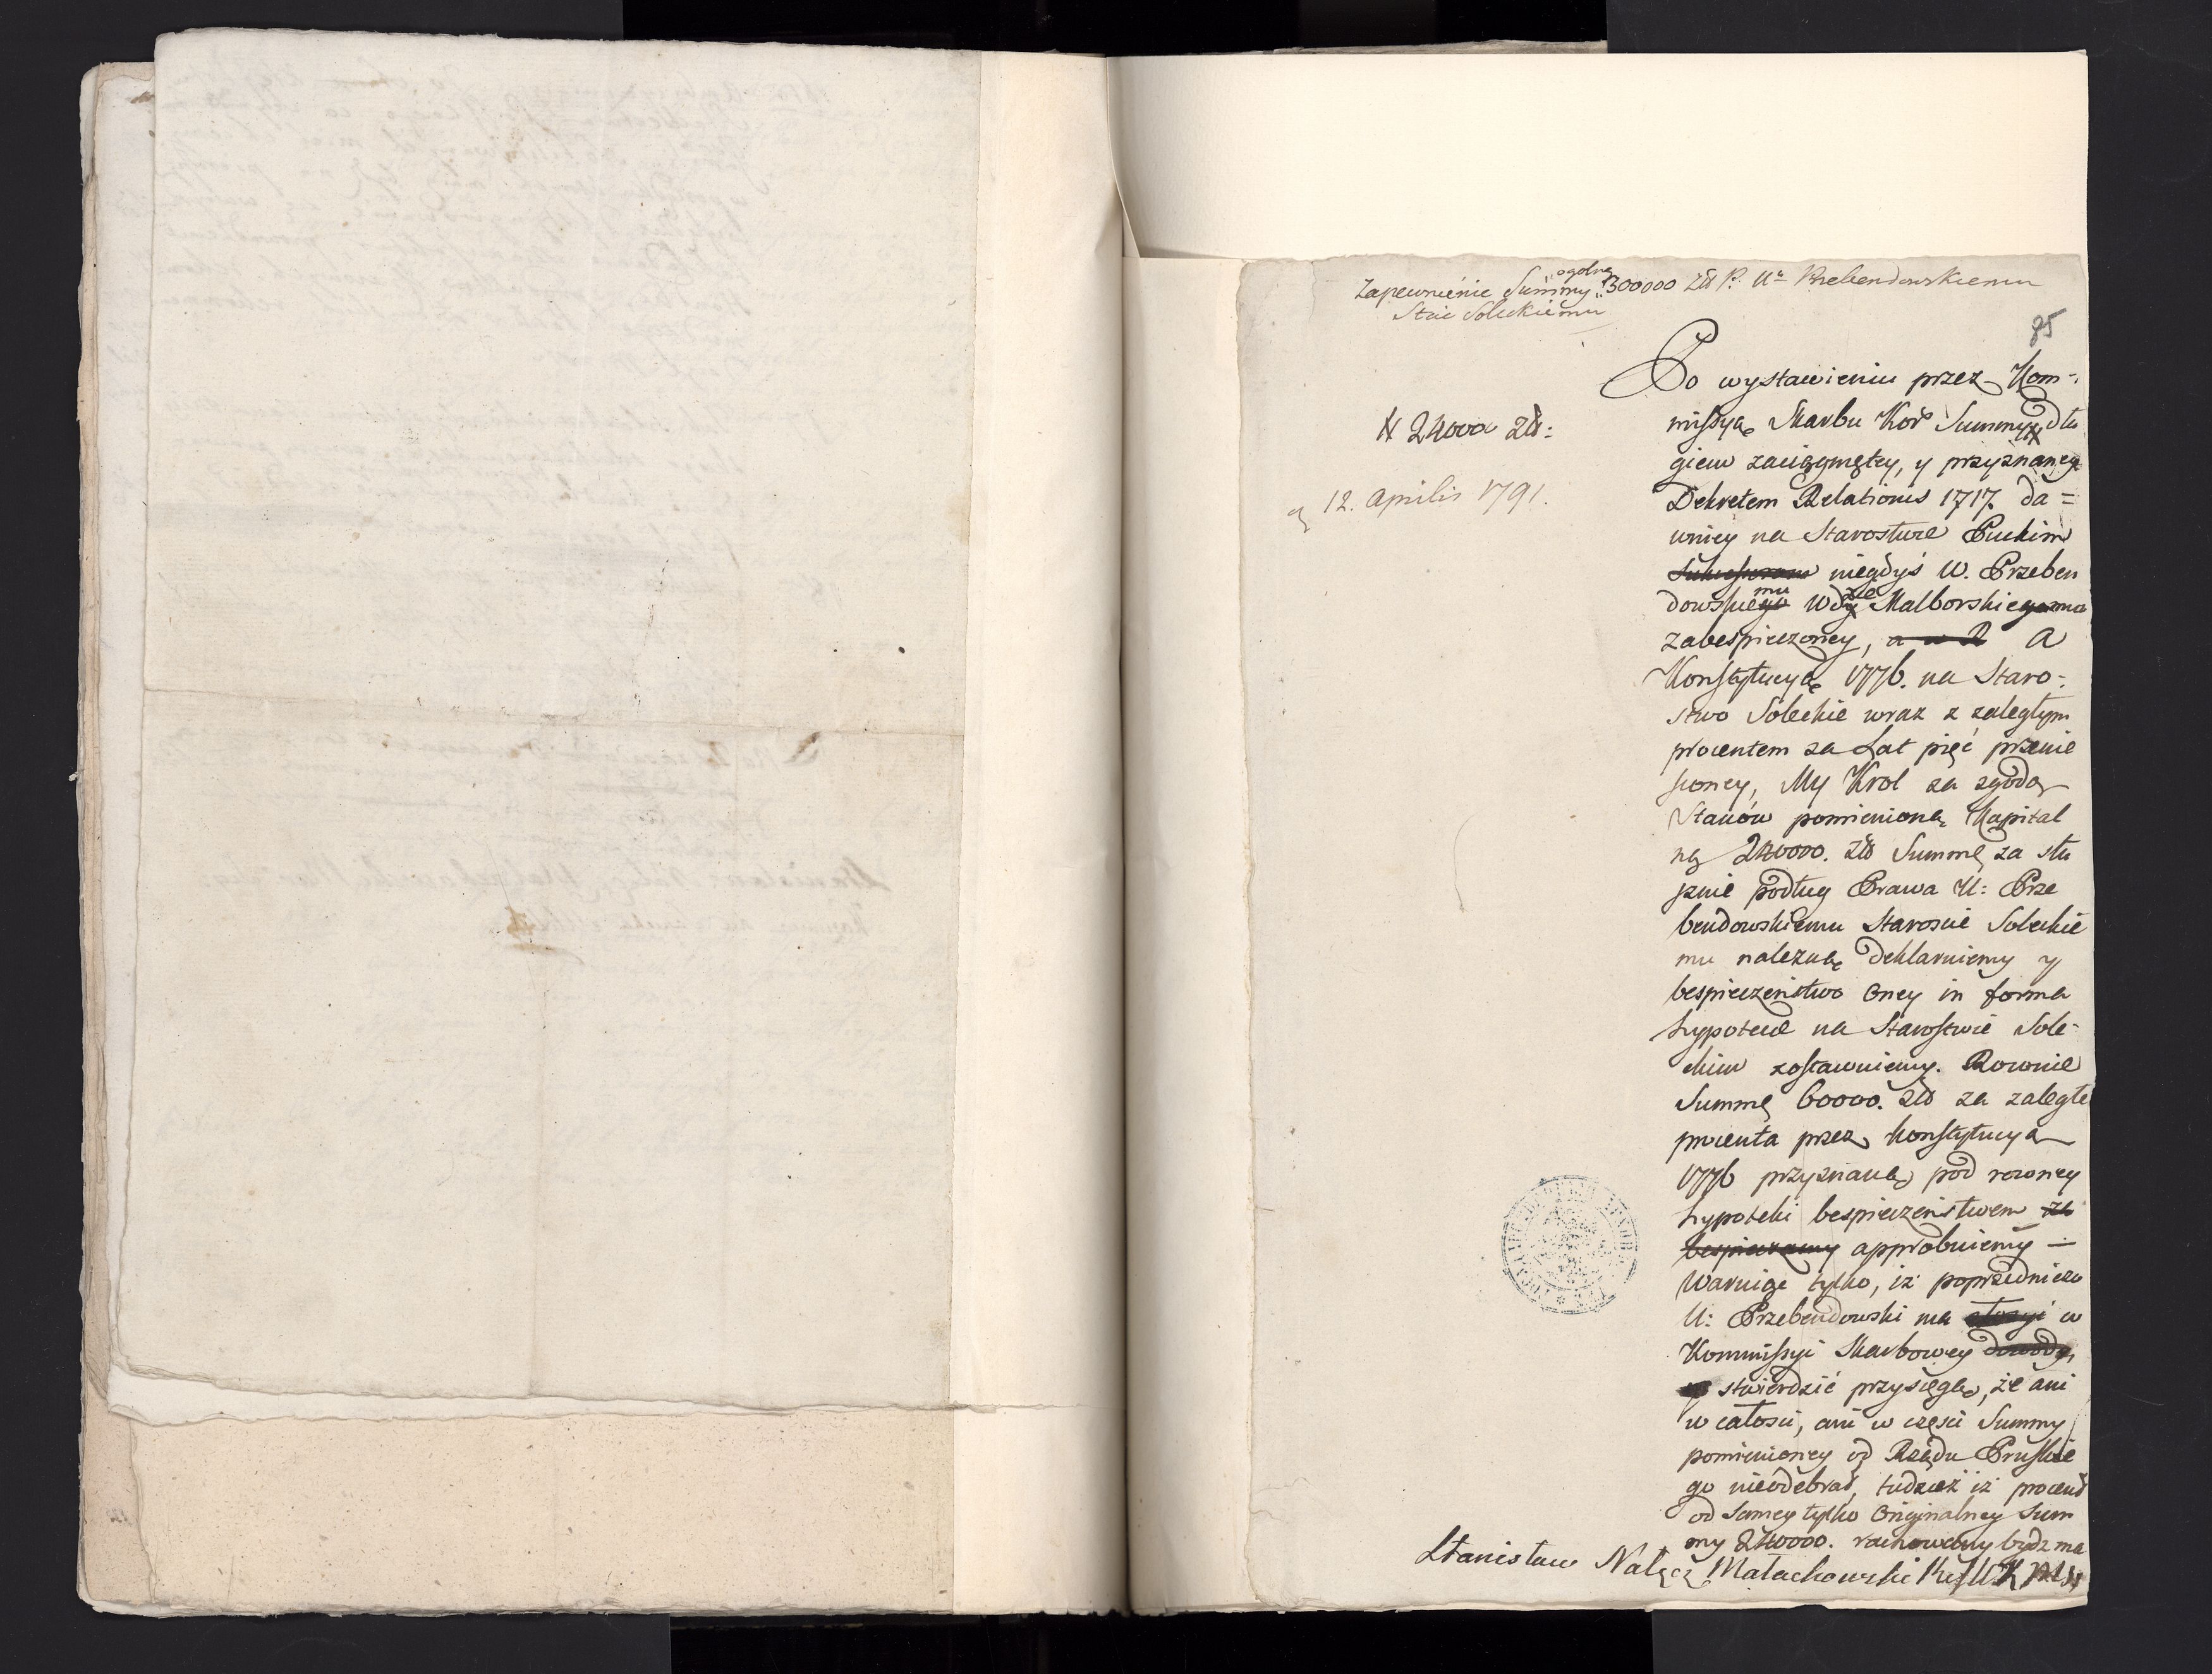 Zapewnienie Summy ogolney 300000 Zł P. Ur Przebendowskiemu
Stcie Soleckiemu
85
Po wystawieniu przez Kom-
missyą Skarbu Kor Summy # dłu
# 240000 Zł:
giem zaciągniętey, y przyznaney
12. Aprilis 1791.
Dekretem Relationis 1717. da=
wniey na Starostwie Puckim
Sukcessorom niegdyś W. Przeben
dowskiemu Wdzie Malborskiemu
zabespieczoney, a w R A
Konstytucyą 1776. na Staro-
stwo Soleckie wraz z zaległym
procentem za Lat pięć przenie
sioney, My Krol za zgodą
Stanów pomienioną Kapital
ną 240000. Zł Summę za słu
sznie podług Prawa U: Prze
bendowskiemu Staroscie Soleckie
mu należną deklaruiemy y
bespieczenstwo Oney in forma
hypotecæ na Starostwie Sole-
ckim zostawuiemy. Rownie
Summę 60000. Zł za zaległe
procenta przez konstytucyą
1776 przyznaną pod rowney
hypoteki bespieczenstwem za
bespieczamy approbuiemy —
Waruiąc tylko, iż poprzedniczo
U: Przebendowski ma złożyć w
Kommissyi Skarbowey dowody,
stwierdzić przysięgą, że ani
w całosci, ani w częsci Summy
pomienioney od Rządu Pruskie
go nieodebrał, tudzież iż procent
od samey tylko Originalney Sum
my 240000. rachowany bydz ma
Stanisław Nałęcz Małachowski